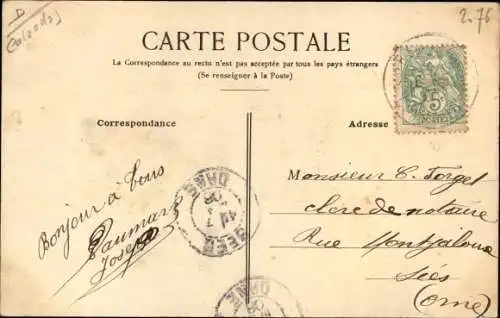 D
(Calvados)
2.76
CARTE POSTALE
La Correspondance au recto n'est pas acceptée par tous les pays étrangers
(Se renseigner à la Poste)
Correspondance
Adresse
5
Bonjour à tous
Joseph
SEES
ORNE
Monsieur C. Forget
clerc de notaire
Rue Montjaloux
Sées
(Orne)
ORNE